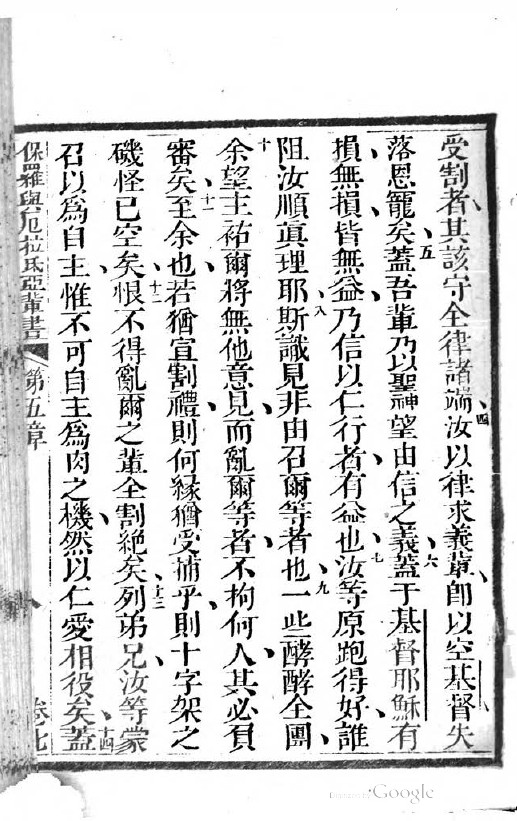 受割者其該守全律諸端四汝以律求義輩卽以空基督失
落恩寵矣五蓋吾輩乃以聖神望由信之義六蓋于基督耶穌有
損無損皆無益乃信以仁行者有益也七汝等原跑得好誰
阻汝順眞理耶八斯識見非由召爾等者也九一些酵酵全團
十余望主祐爾將無他意見而亂爾等者不拘何人其必負
審矣十一至余也若猶宣割禮則何緣猶受捕乎則十字架之
磯怪已空矣十二恨不得亂爾之輩全割絕矣十三列弟兄汝等蒙
召以為自主惟不可自主為肉之機然以仁愛相役矣十四蓋
保羅與厄拉氐亞輩書 第五章 卷七
Digitized by Google